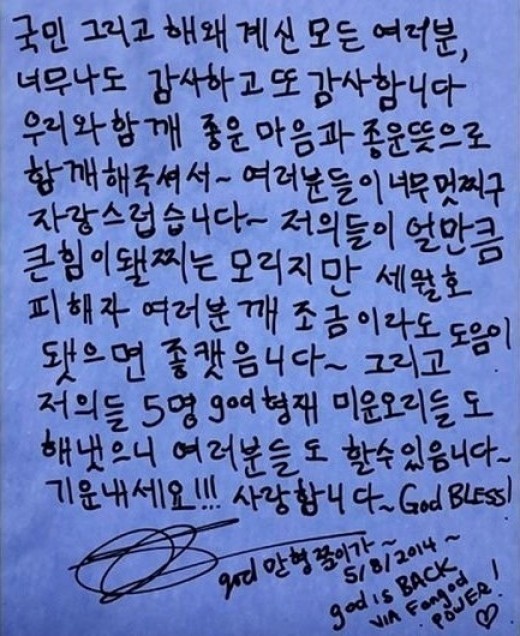 국민 그리고 해왜 계신 모든 여러분,
너무나도 감사하고 또 감사합니다
우리와 함깨 좋운 마음과 좋운뜻으로
함깨해주셔서~ 여러분들이 너무 멋찌구
자랑스럽습니다~ 저의들이 얼만큼
큰힘이됄찌는 모리지만 세월호
피해자 여러분깨 조금이라도 도음이
됏으면 좋캣읍니다~ 그리고
저의들 5명 god형재 미운오리들도
해냇으니 여러분들도 할수있음니다~
기운내세요!!! 사랑함니다~ God BLESS!
god 만형쭌이가~
5/8/2014~
god is BACK
VIA Fangod
POWER! ♡